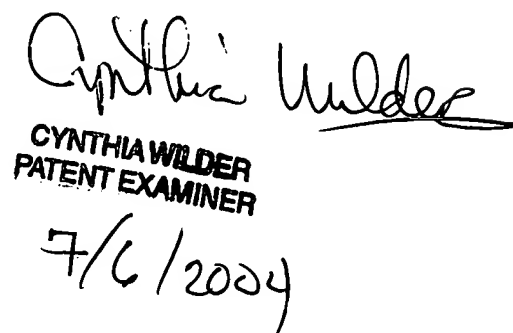 Cynthia Wilder
CYNTHIA WILDER
PATENT EXAMINER
7/6/2004